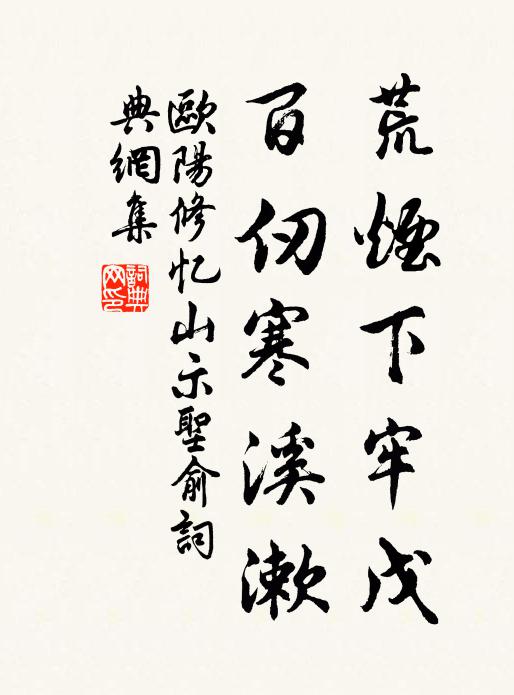 荒煙下牢戍
百仞寒溪漱
歐陽修忆山示聖俞詞
典網集
詞典網印